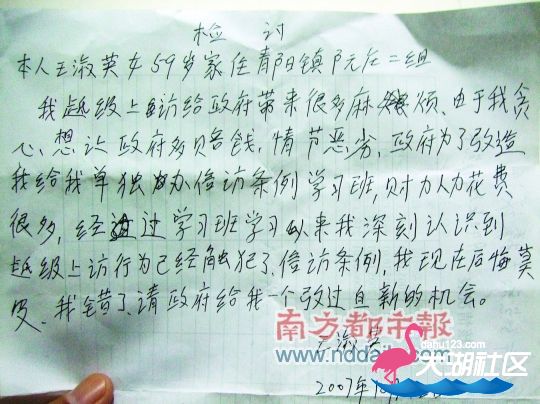 检 讨
本人王淑英女59岁家住鄢阳镇阝元左二组
我越级上访给政府带来很多麻烦、由于我贪
心、想让政府多贝音钱、情节恶劣、政府为了改造
我给我单独办信访条例学习班,财力人力花费
很多,经过学习班学习以来我深刻认识到
越级上访行为已经触犯了信访条例,我现在后悔莫
及、我错了请政府给我一个改过自新的机会。
南方都市報
www.nddaily
淑
2007年10月
dahu123.com
大湖社区